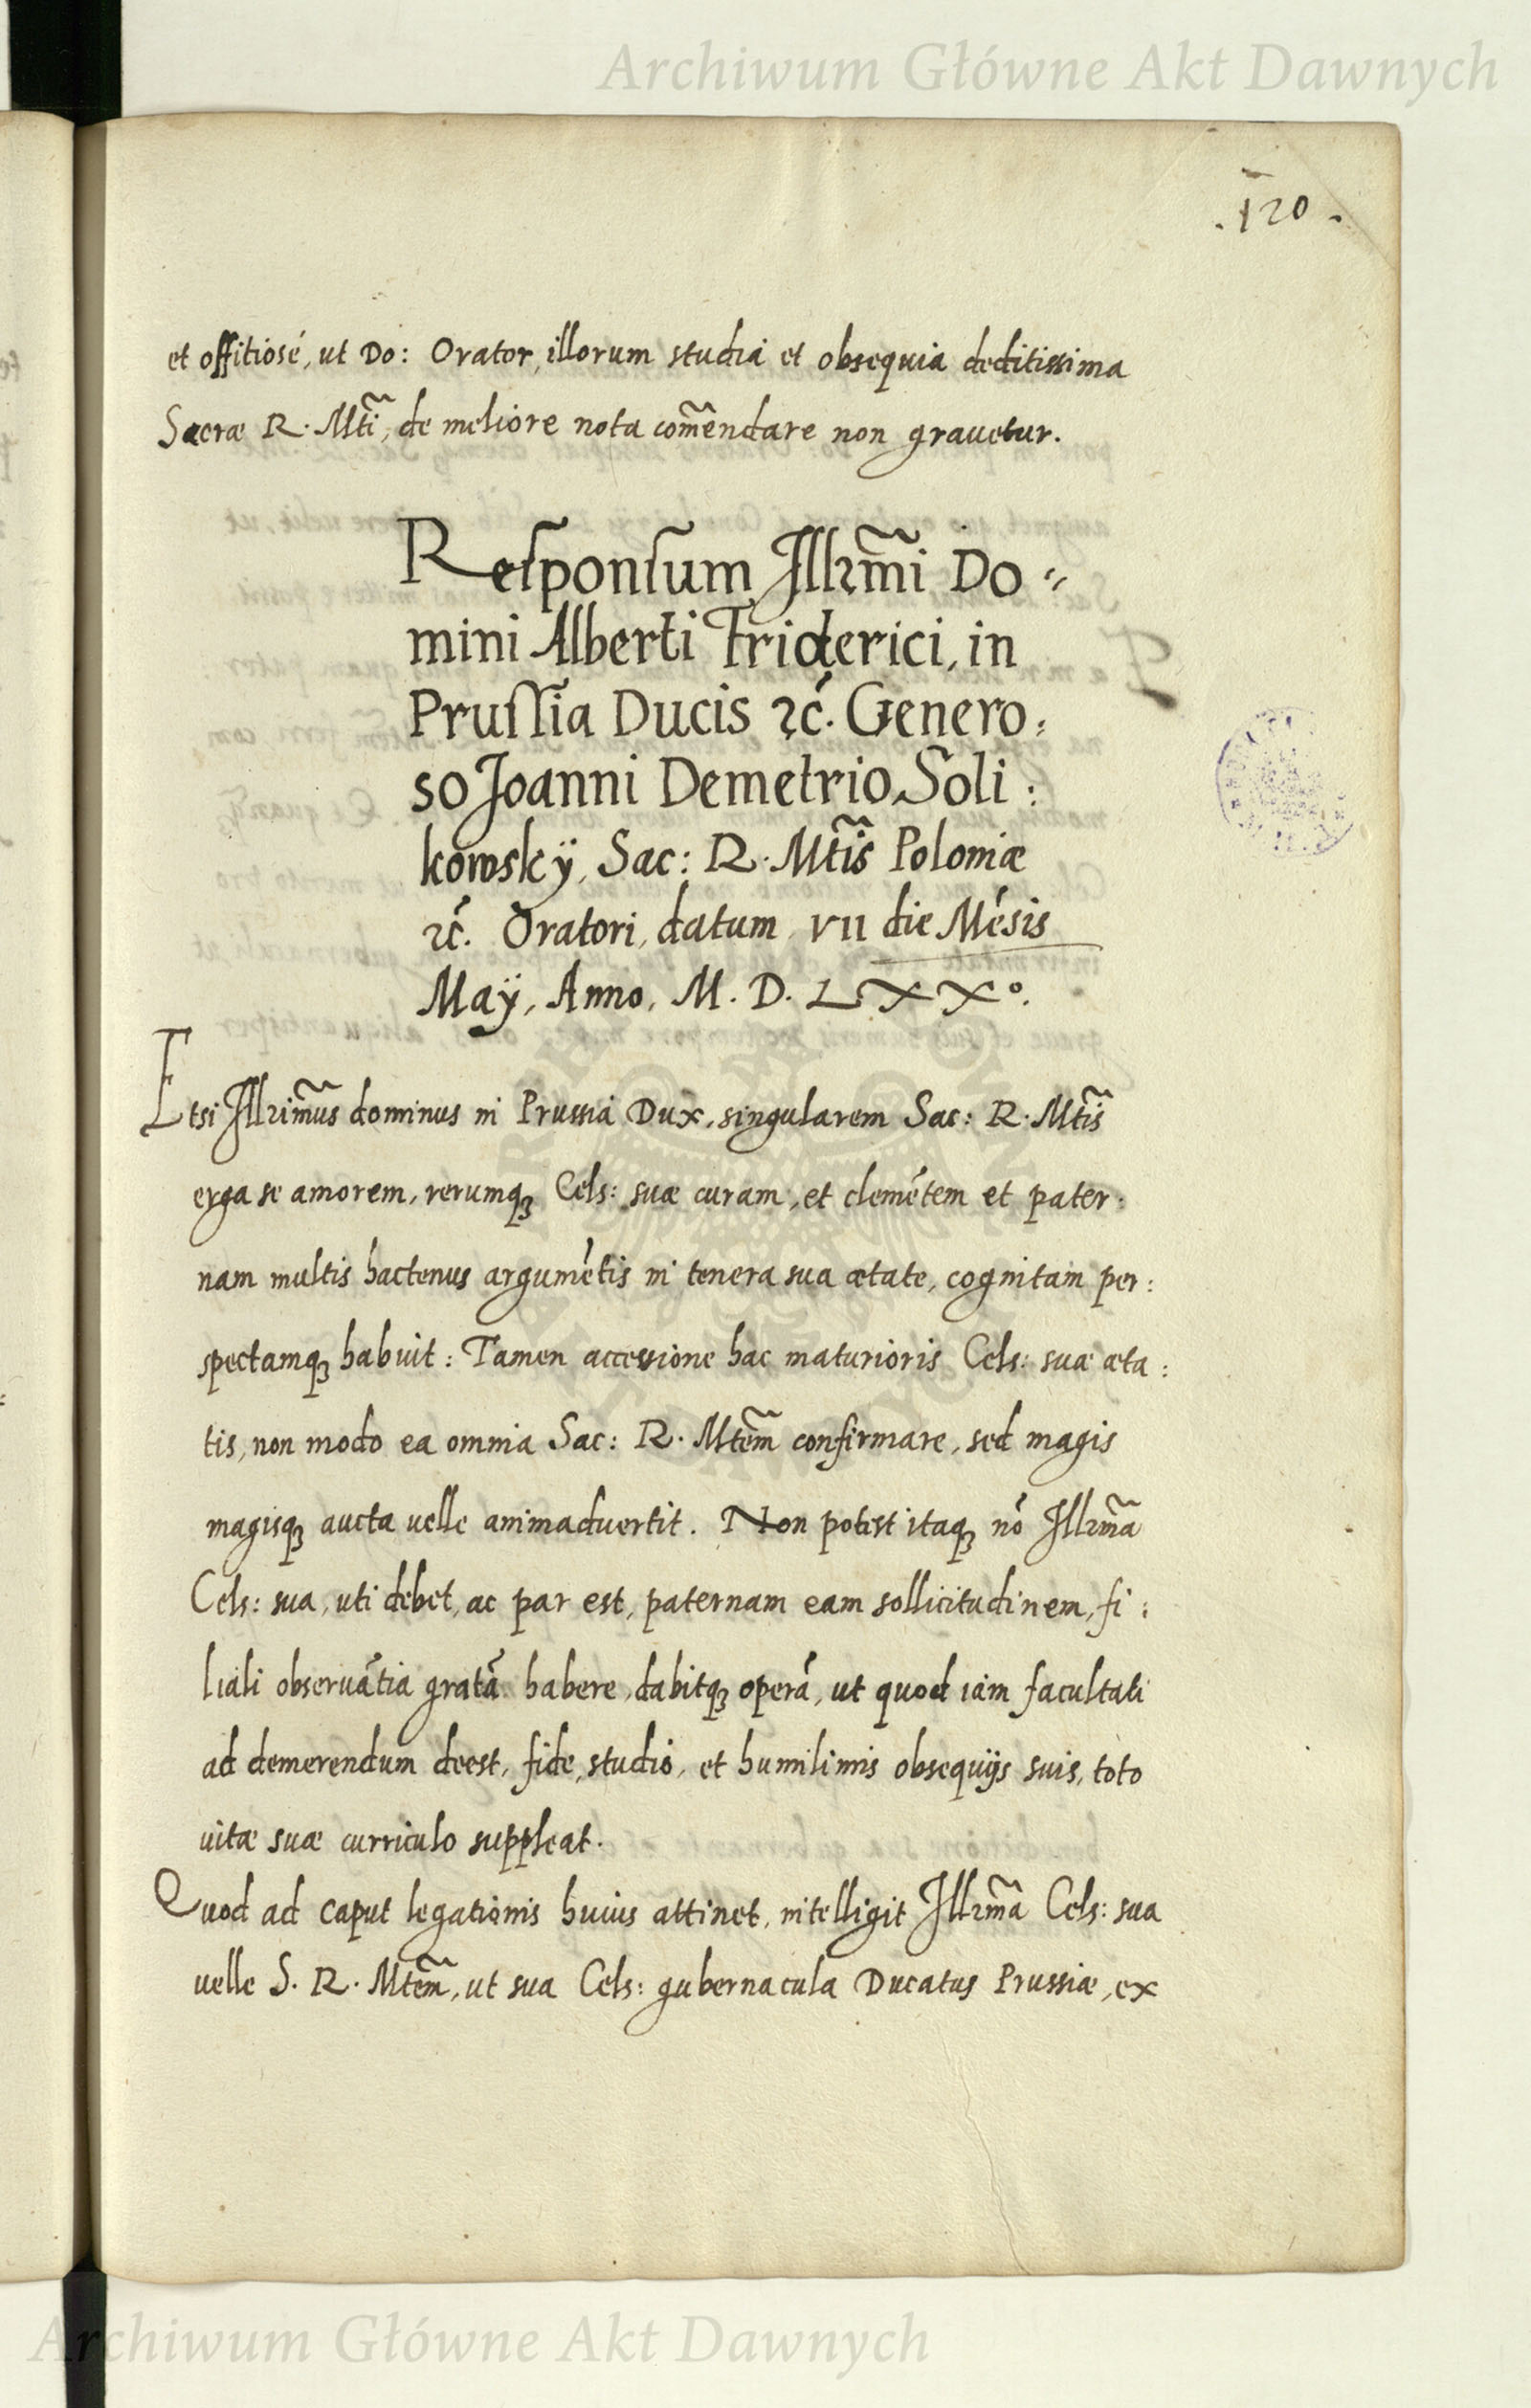 Archiwum Główne Akt Dawnych
.120.
et offitiosé, ut Do: Orator, illorum studia et obsequia deditissima
Sacræ R. Mti͂, de meliore nota com͂endare non grauetur.
Responsum Illr͂mi Do=
mini Alberti Friderici, in
Prussia Ducis ꝛć. Genero:
so Joanni Demetrio Soli:
kowskÿ, Sac: R. Mt͂is Poloniæ
ꝛć. Oratori, datum VII die Mēsis
Maÿ, Anno, M. D. LXX°.
Etsi Illrim͂us dominus in Prussia Dux, singularem Sac: R. Mt͂is
erga se amorem, rerumqꝫ Cels: suæ curam, et clemētem et pater:
nam multis hactenus argumētis in tenera sua ætate, cognitam per:
spectamqꝫ habuit: Tamen accessione hac maturioris Cels: suæ æta:
tis, non modo ea omnia Sac: R. Mte͂m confirmare, sed magis
magisqꝫ aucta uelle animaduertit. Non potest itaqꝫ nō Illr͂ma
Cels: sua, uti debet, ac par est, paternam eam sollicitudinem, fi:
liali obseruātia gratā habere, dabitqꝫ operā, ut quod iam facultati
ad demerendum deest, fide, studio, et humilimis obsequijs suis, toto
uitæ suæ curriculo suppleat.
Quod ad caput legationis huius attinet, intelligit Illr͂ma Cels: sua
uelle S. R. Mte͂m, ut sua Cels: gubernacula Ducatus Prussiæ, ex
Archiwum Główne Akt Dawnych